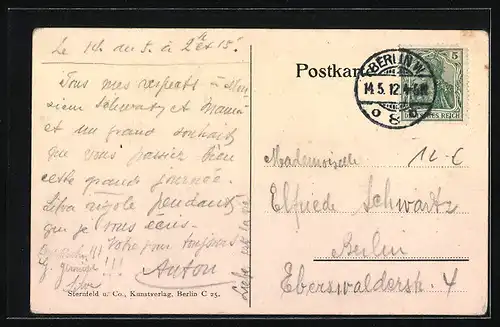 Le 14. du 5. à 2 h et 15.
Tous mes respects à Mon-
sieur Schwartz et Maman
et un grand souhait
que vous passiez bien
cette grande journée.
rigole pendant
que je vous écris.
Votre pour toujours
Anton
Postkarte
BERLIN W.
14.5.12
8
5
DEUTSCHES REICH
Mademoiselle
Elfriede Schwartz
Berlin
Eberswalderstr. 4
Sternfeld u. Co., Kunstverlag, Berlin C 25.